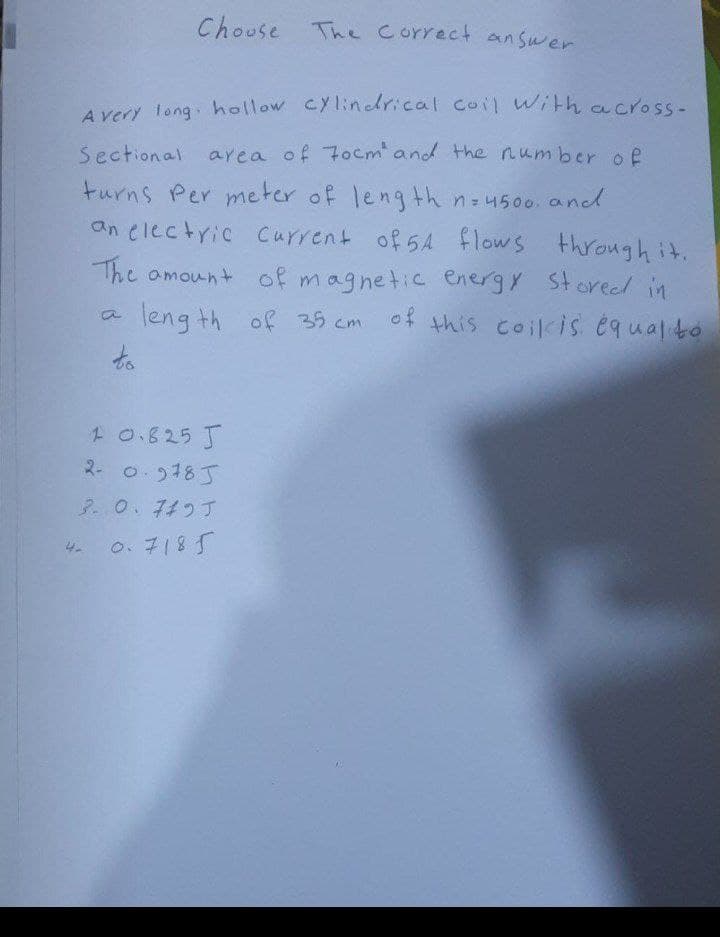 Choose The Correct answer
A very long. hollow cylindrical coil with a cross-
Sectional area of 70cm² and the number of
turns Per meter of length n=4500. and
an electric current of 5A flows through it.
The amount of magnetic energy stored in
a length of 35 cm of this coil is equal to
to
1 0.825 J
2- 0.978 J
3- 0.779 J
4- 0.718 J